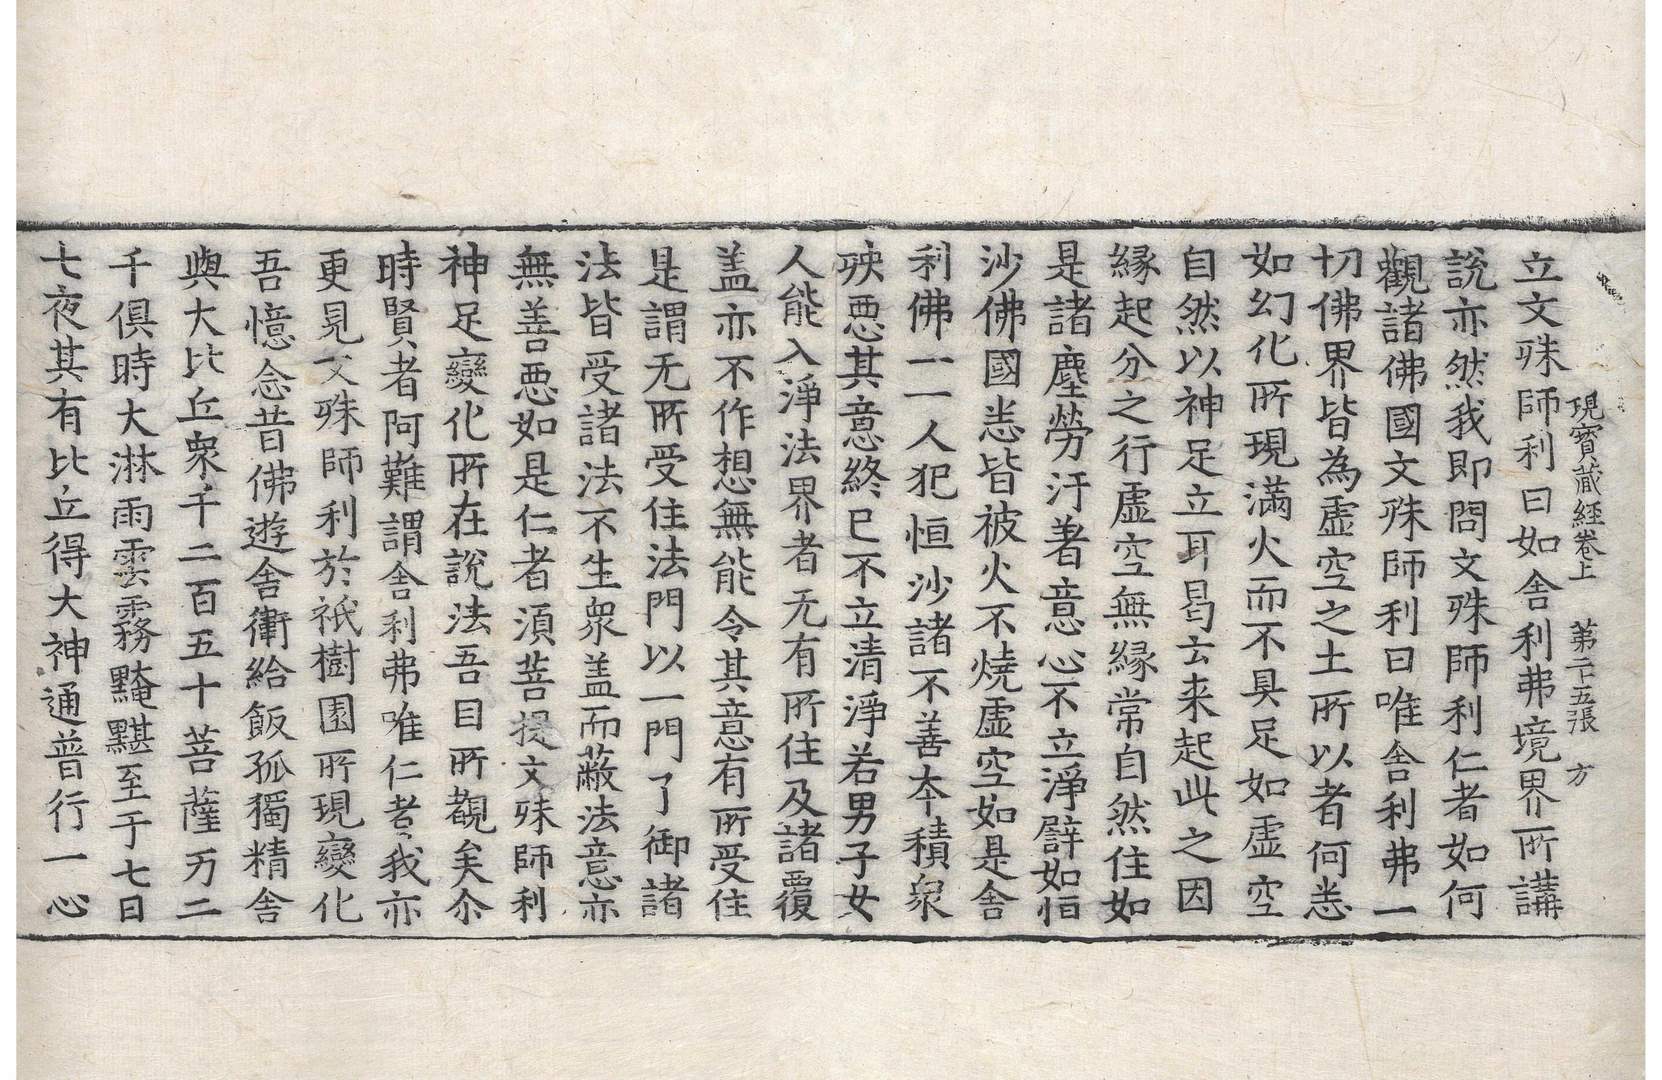 現寳藏経卷上　第二十五張　方
立文殊師利曰如舍利弗境界所講
說亦然我即問文殊師利仁者如何
觀諸佛國文殊師利曰唯舍利弗一
切佛界皆為虛空之土所以者何悉
如幻化所現滿火而不具足如虛空
自然以神足立耳曷云来起此之因
縁起分之行虛空無縁常自然住如
是諸塵勞汙著意心不立淨譬如恒
沙佛國悉皆被火不燒虛空如是舍
利佛一一人犯恒沙諸不善夲積衆
殃惡其意終已不立清淨若男子女
人能入淨法界者无有所住及諸覆
盖亦不作想無能令其意有所受住
是謂无所受住法門以一門了御諸
法皆受諸法不生衆盖而蔽法意亦
無善惡如是仁者湏菩提文殊師利
神足變化所在說法吾目所覩矣尒
時賢者阿難謂舍利弗唯仁者我亦
更見文殊師利於祇樹園所現變化
吾憶念昔佛遊舍衛給飯孤獨精舍
與大比丘衆千二百五十菩薩万二
千俱時大淋雨雲霧黤黮至于七日
七夜其有比丘得大神通普行一心